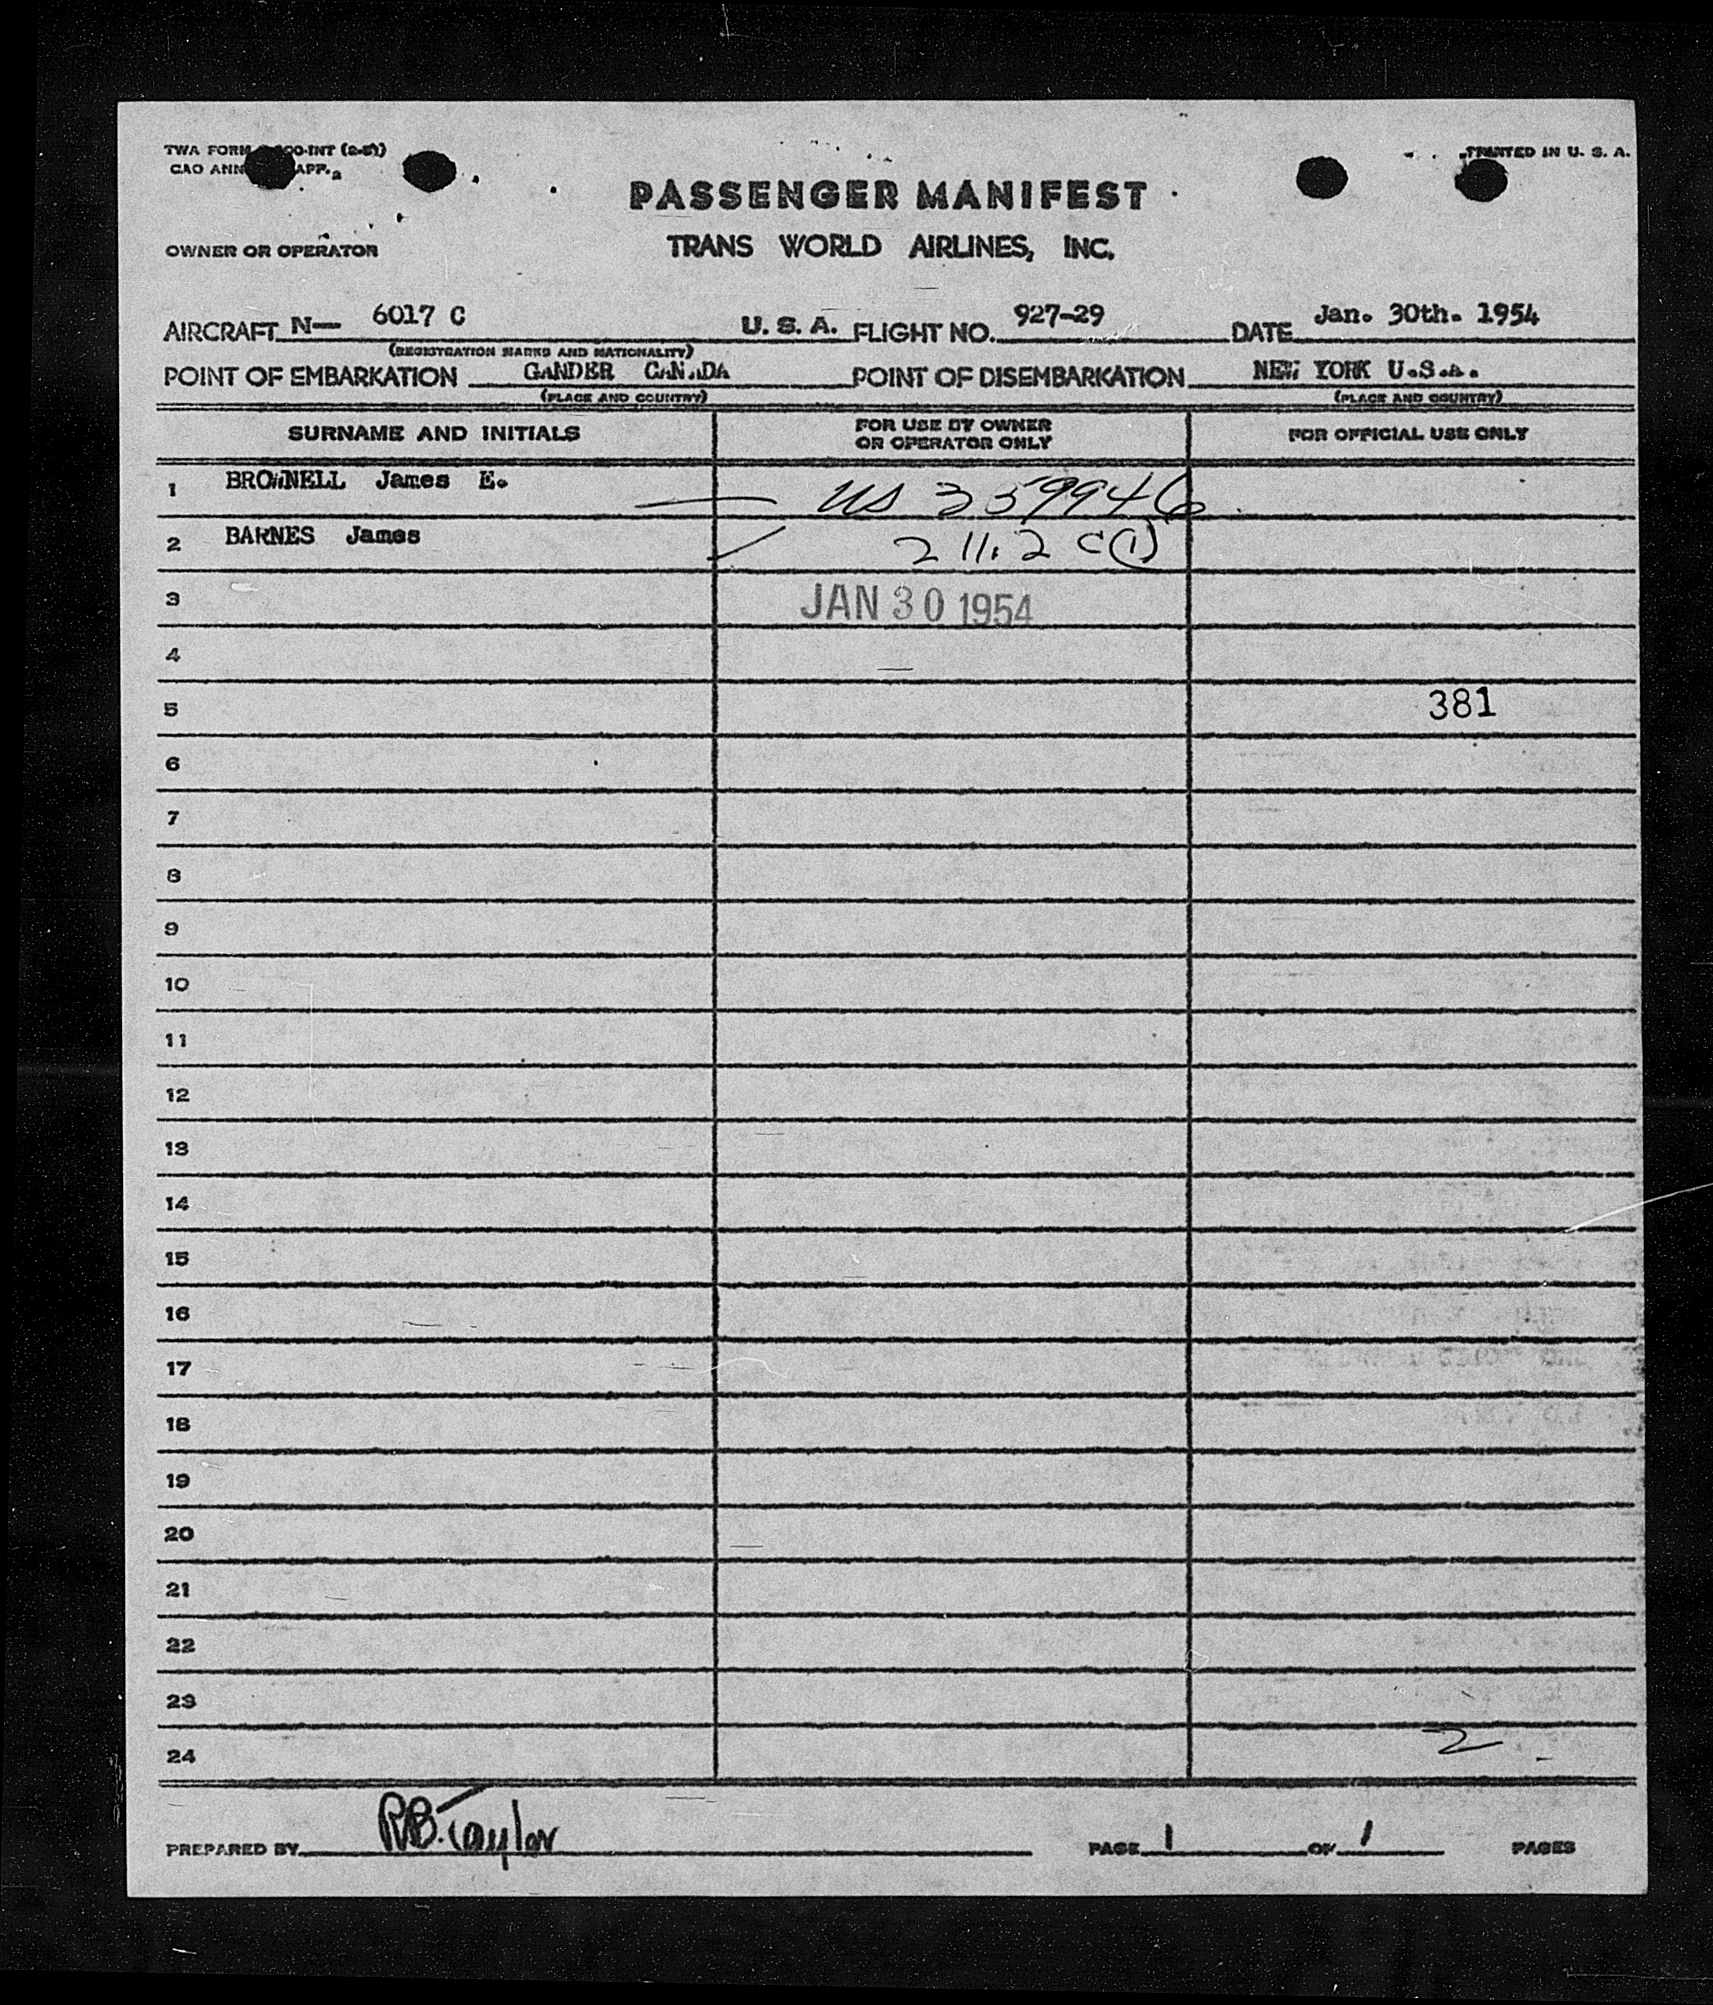 TWA FORM 00-INT (2-51)
CAO ANN APP. 2
PRINTED IN U. S. A.
PASSENGER MANIFEST
OWNER OR OPERATOR
TRANS WORLD AIRLINES, INC.
AIRCRAFT N— 6017 C U. S. A. FLIGHT NO. 927-29 DATE Jan. 30th. 1954
(REGISTRATION MARKS AND NATIONALITY)
POINT OF EMBARKATION GANDER CANADA POINT OF DISEMBARKATION NEW YORK U.S.A.
(PLACE AND COUNTRY) (PLACE AND COUNTRY)
SURNAME AND INITIALS FOR USE BY OWNER OR OPERATOR ONLY FOR OFFICIAL USE ONLY
1 BROWNELL James E. — US 259946
2 BARNES James ✓ 2 11.2 C(1)
3 JAN 30 1954
4
5 381
6
7
8
9
10
11
12
13
14
15
16
17
18
19
20
21
22
23
24 2
PREPARED BY RB. Taylor PAGE 1 OF 1 PAGES